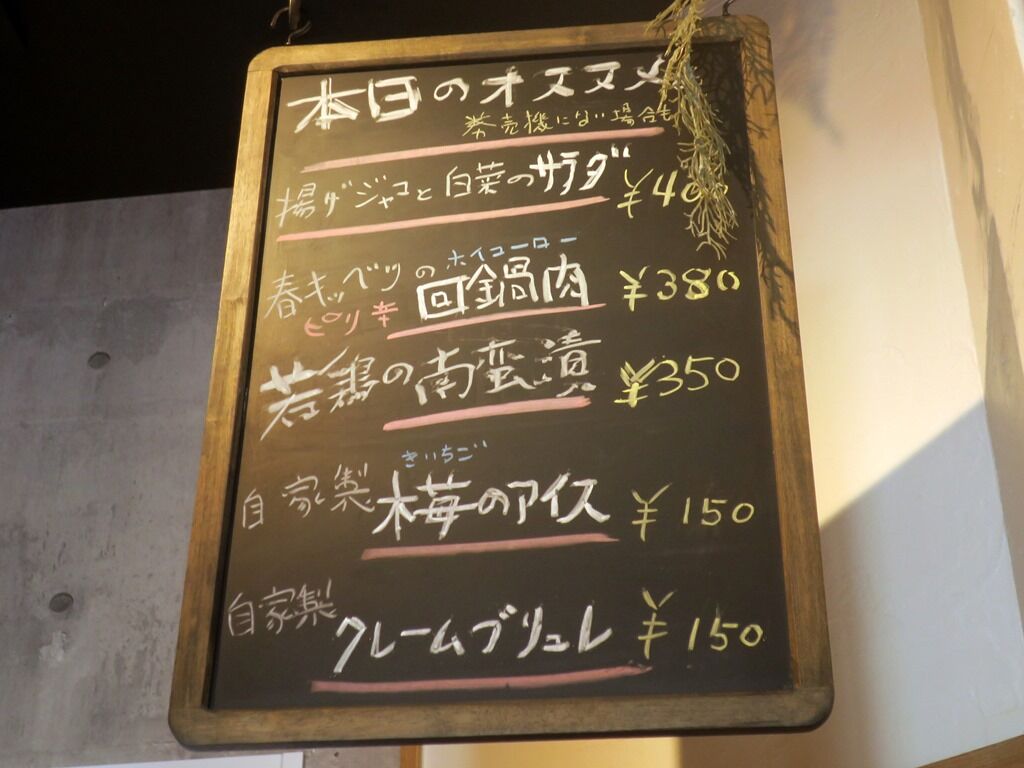 本日のオススメ
券売機にない場合も
揚げジャコと白菜のサラダ ¥40
ホイコーロー
春キャベツの回鍋肉 ¥380
ピリ辛
若鶏の南蛮漬 ¥350
きいちご
自家製 木苺のアイス ¥150
自家製 クレームブリュレ ¥150